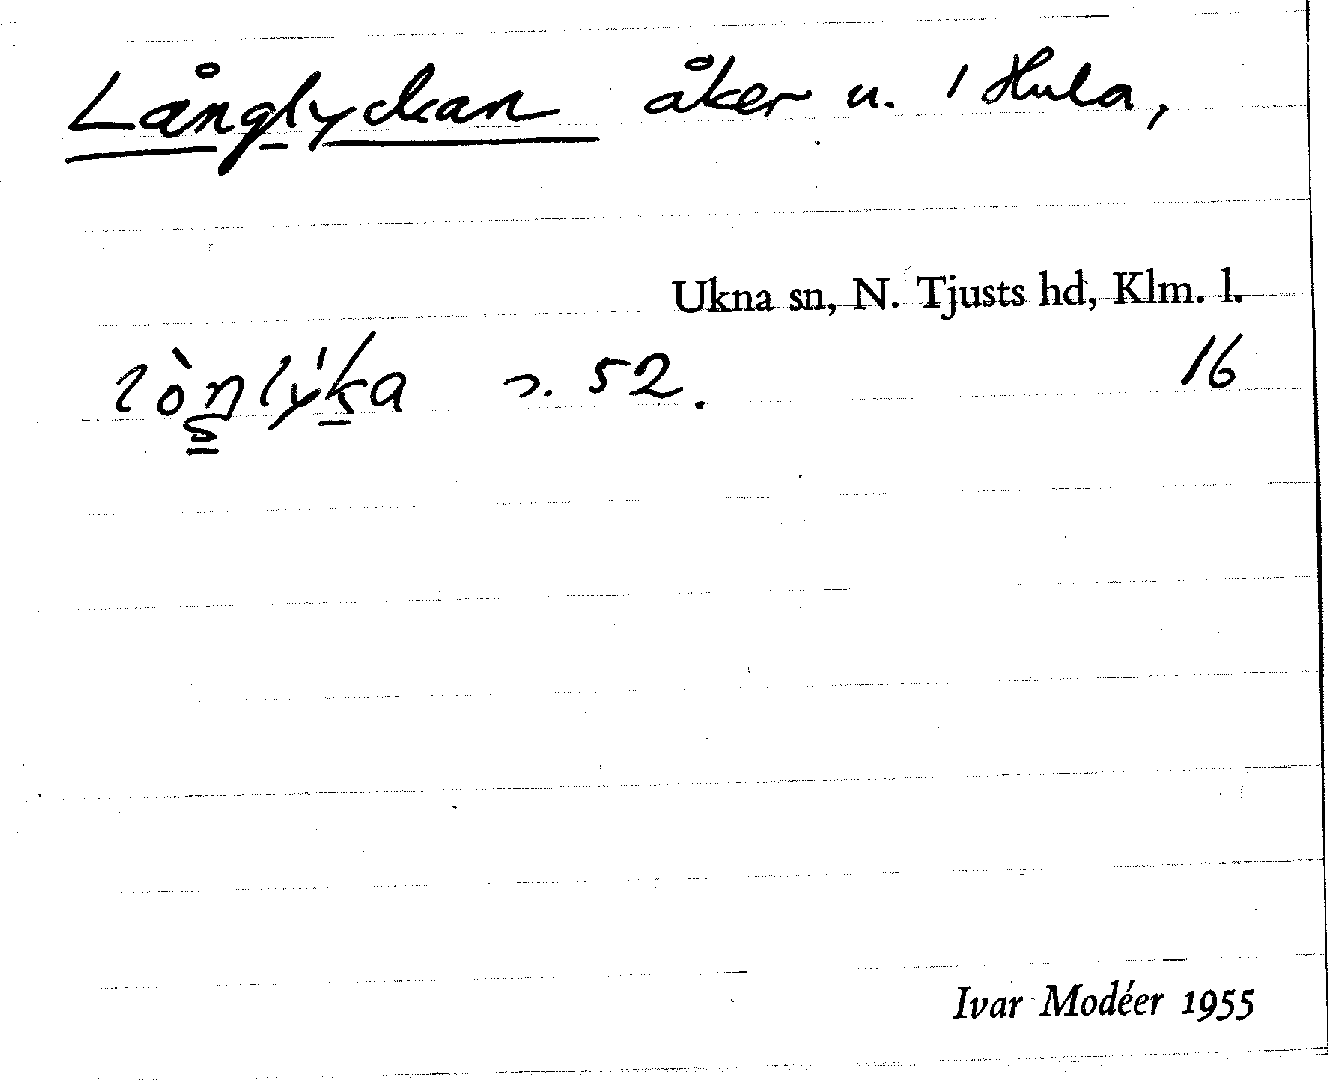 Långlyckan åker u. 1 Hula,
Ukna sn, N. Tjusts hd, Klm. l.
s. 52. 16
Ivar Modéer 1955